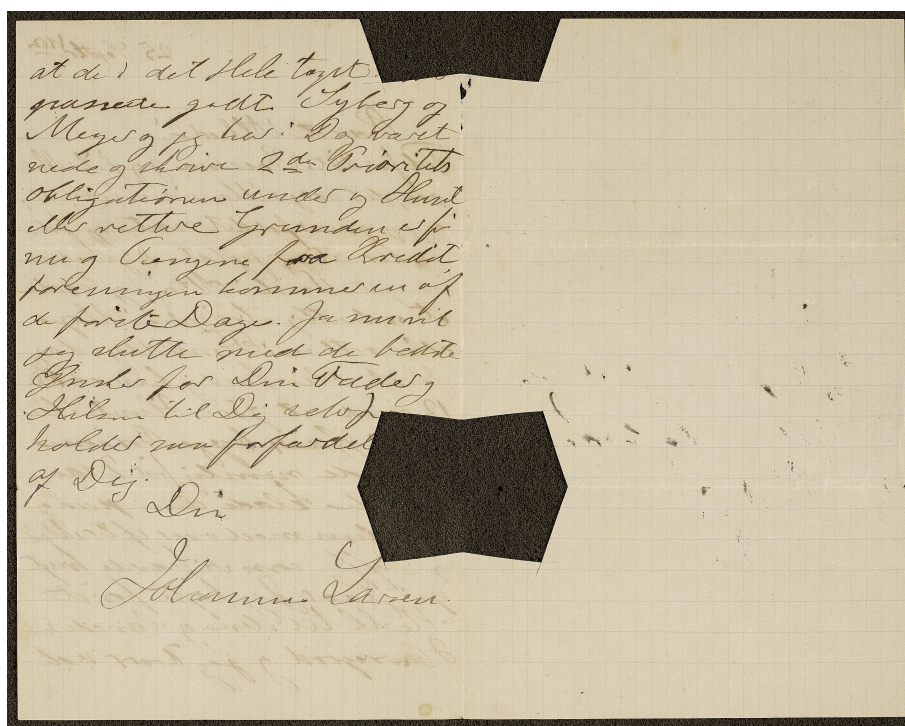 at de i det Hele taget
passede godt. Syberg og
Meyer og jeg har i Dag været
nede og skrive 2den Prioritets
obligationen under og Huset
eller rettere Grunden er for
nu og Pengene fra Kredit
foreningen kommer en af
de første Dage. Ja nu vil
jeg slutte med de bedste
Ønsker for Din Fader og
Hilsen til Dig selv, jeg
holder saa forfærdelig
af Dig.
Din
Johannes Larsen.